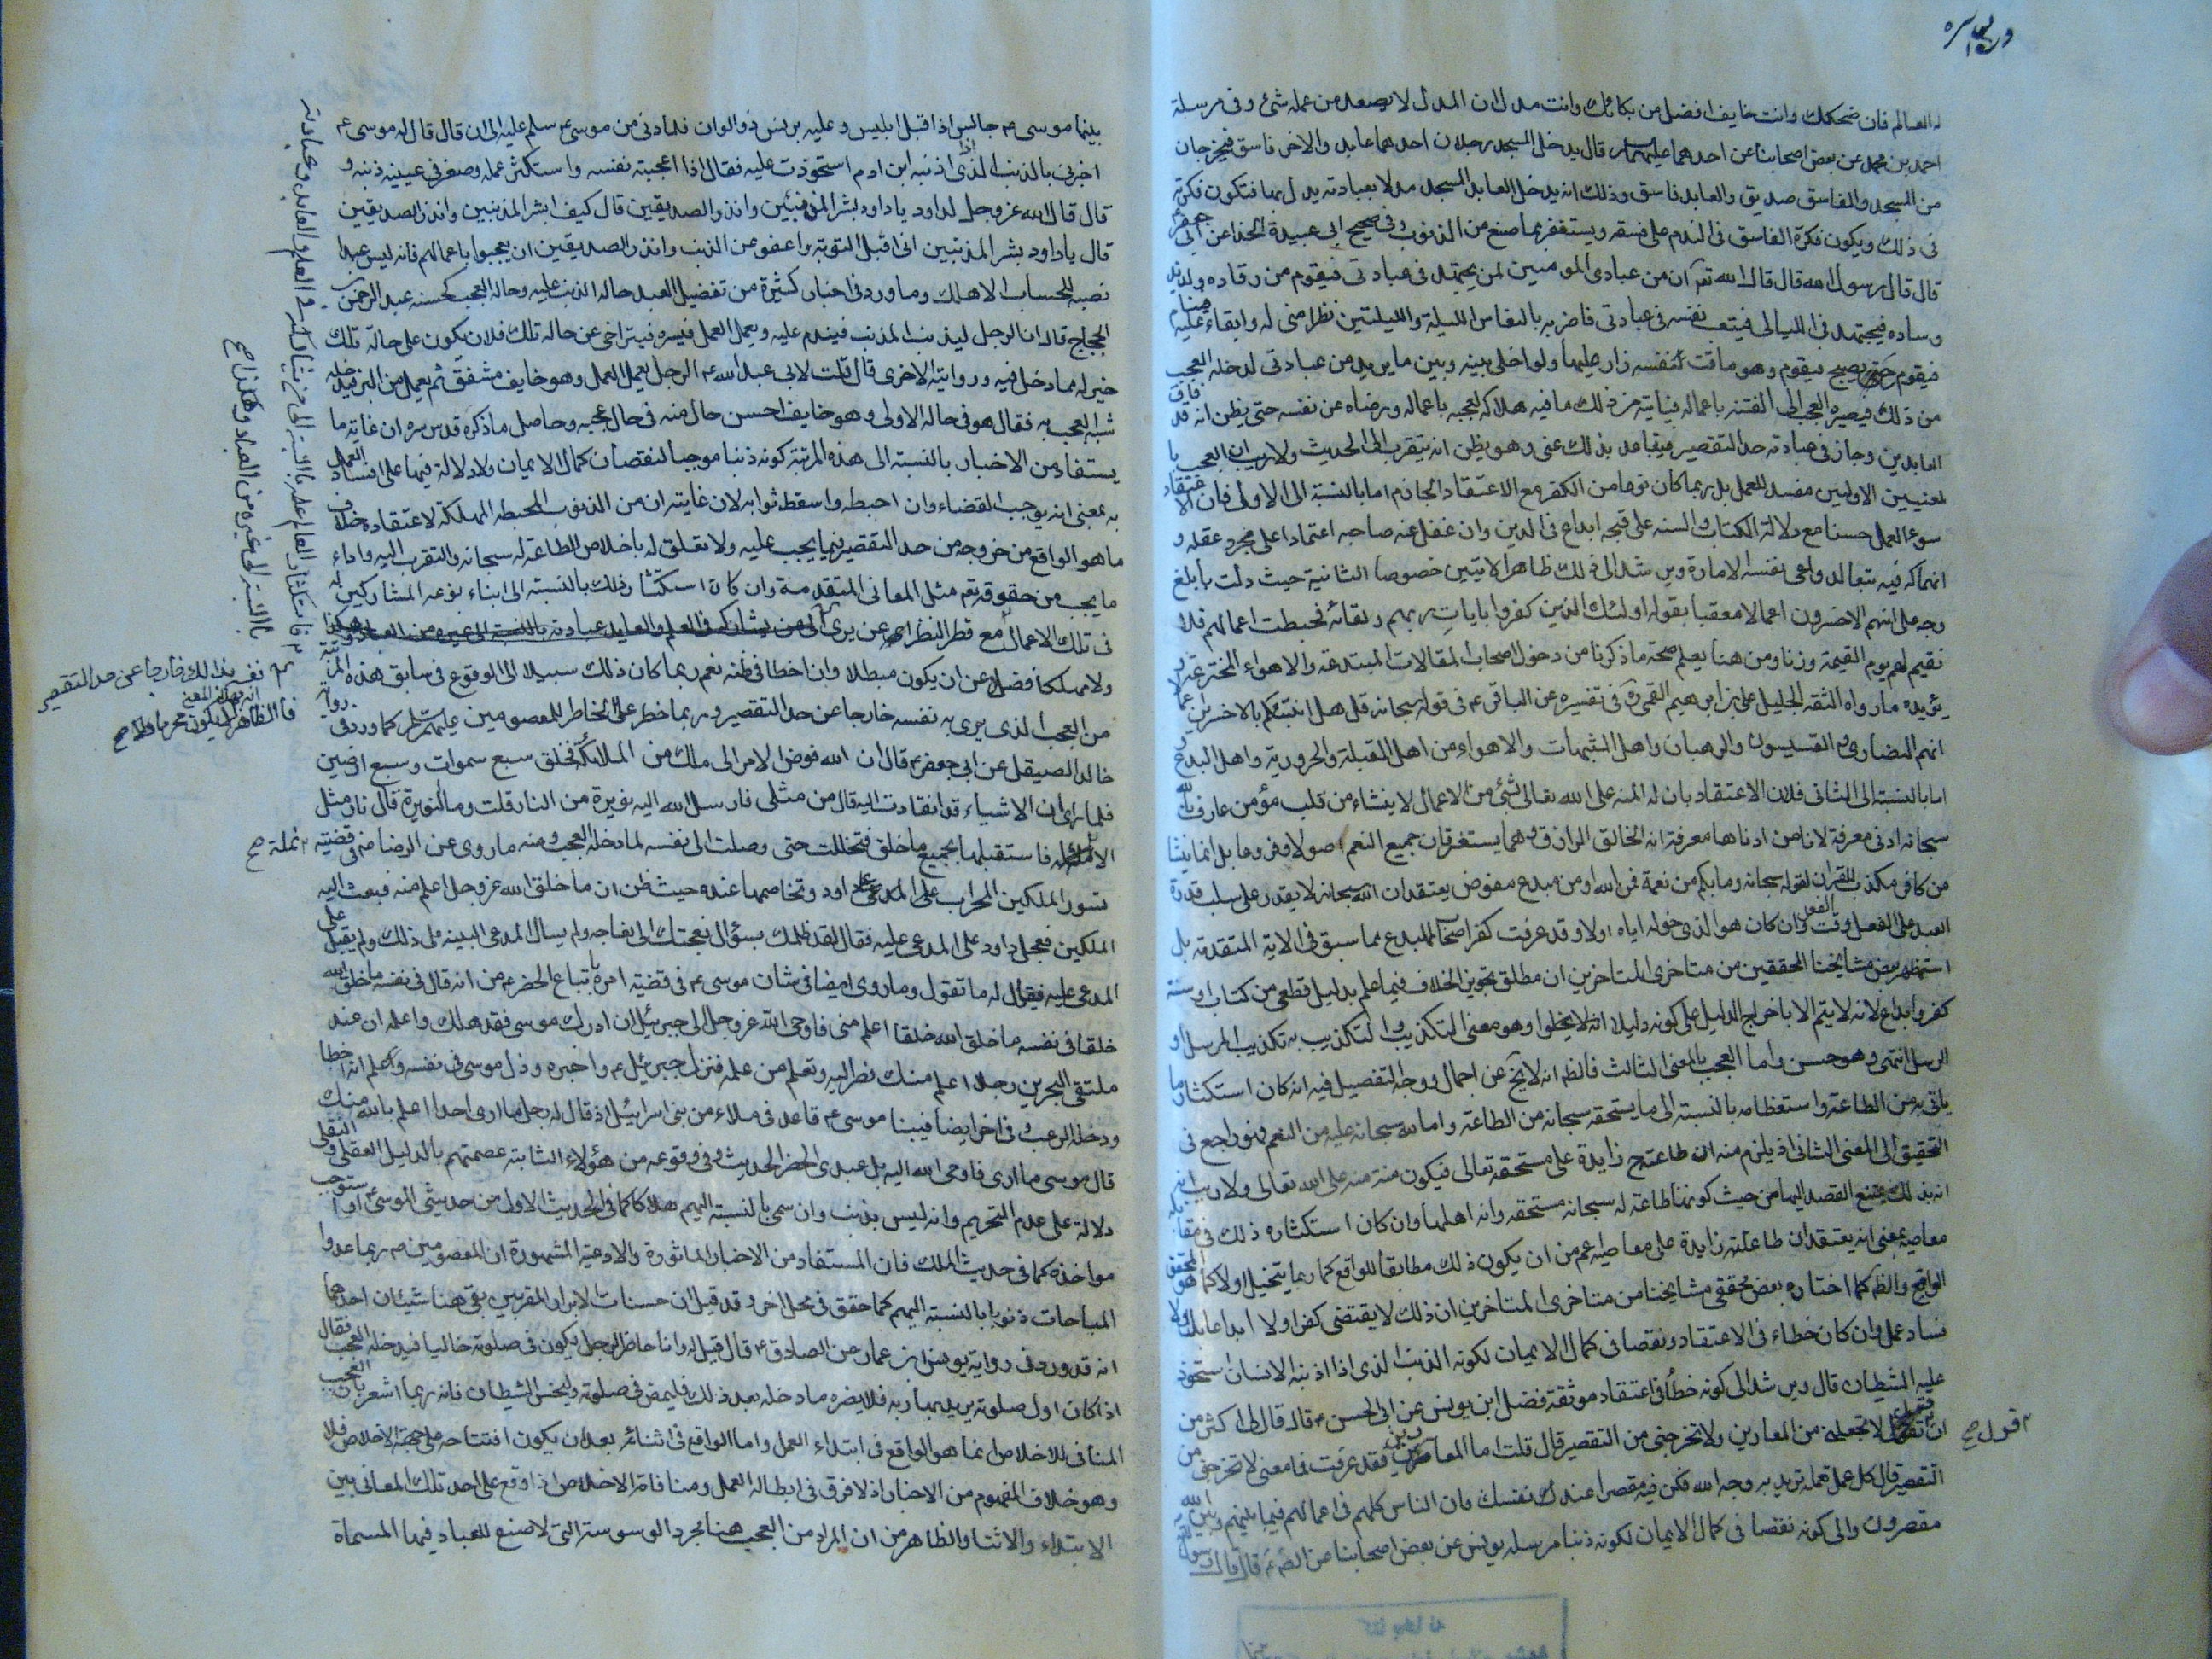 له العالم فان ضحكك وانت خايف افضل من بكائك وانت مدل لان المدل لا يصعد من عمله شئ وفى مرسلة
احمد بن محمد عن بعض اصحابنا عن احدهما عليهما قال يدخل المسجد رجلان احدهما عابد والاخر فاسق فيخرجان
من المسجد والفاسق صديق والعابد فاسق وذلك انه يدخل العابد المسجد مدلا بعبادته يدل بها فتكون فكرته
فى ذلك ويكون فكرة الفاسق فى الندم على فسقه ويستغفر مما صنع من الذنوب وفى صحيح ابى عبيدة الحذا عن ابى جعفر ع
قال قال رسول الله قال قال الله تع ان من عبادى المومنين لمن يجتهد فى عبادتى فيقوم من رقاده ولذيذ
وساده فيجتهد فى الليالى فيتعب نفسه فى عبادتى فاضربه بالنعاس الليلة والليلتين نظرا منى له وابقاء عليه فينام
فيقوم حتى يصبح فيقوم وهو ماقت لنفسه زار عليها ولو اخلى بينه وبين ما يريد من عبادتى لدخله العجب
من ذلك فيصيره العجب الى الفتنة باعماله فياتيه من ذلك ما فيه هلاكه لعجبه باعماله ورضاه عن نفسه حتى يظن انه قد فاق
العابدين وجاز فى عبادته حد التقصير فيتباعد بذلك عنى وهو يظن انه يتقرب الى الحديث ولا ريب ان العجب با
لمعنيين الاوليين مفسد للعمل بل ربما كان نوعا من الكفر مع الاعتقاد الجازم اما بالنسبة الى الاولى فان الا عتقاد
سوء العمل حسنا مع دلالة الكتاب والسنه على قبحه ابداع فى الدين وان غفل عنه صاحبه اعتمادا على مجرد عقله و
انهماكه فيه بتعالدواعى نفسه الامارة ويرشد الى ذلك ظاهر الايتين خصوصا الثانية حيث دلت بابلغ
وجه على انهم الاخسرون اعمالا معقبا بقوله اولئك الذين كفروا بايات ربهم ولقائه فحبطت اعمالهم فلا
نقيم لهم يوم القيمة وزنا ومن هنا يعلم صحة ما ذكرنا من دخول اصحاب المقالات المبتدعة والاهواء المخترعة
يؤيده ما رواه الثقه الجليل على بن ابراهيم القمى فى تفسيره عن الباقر ع فى قوله سبحانه قل هل انبئكم بالاخسرين
انهم النصارى والقسيسون والرهبان واهل الشبهات والاهواء من اهل القبلة والحرورية واهل البدع
اما بالنسبة الى الثانى فلان الاعتقاد بان له المنة على الله تعالى بشئ من الاعمال لا ينشاء من قلب مؤمن عارف بالله
سبحانه ادنى معرفة لان من ادناها معرفة انه الخالق الرازق وهما يستغرقان جميع النعم اصولا وفروعا بل انما ينشا
من كافر مكذب للقران لقوله سبحانه وما بكم من نعمة فمن الله او من مبدع مفوض يعتقد ان الله سبحانه لا يقدر على سلب قدرة
العبد على الفعل وقت الفعل وان كان هو الذى خوله اياه اولا وقد عرفت كفر اصحاب البدع مما سبق فى الاية المتقدمة بل
استظهر بعض مشايخنا المحققين من متاخرى المتاخرين ان مطلق تجويز الخلاف فيما علم بدليل قطعى من كتاب او سنة
كفر وابداع لانه لا يتم الا باخراج الدليل على كونه دليلا انه لا يخلوا وهو معنى التكذيب او التكذيب به تكذيب المرسل او
الرسل انتهى وهو حسن واما العجب بالمعنى الثالث فالظ انه لا يخ عن اجمال ووجه التفصيل فيه انه كان استكثار ما
ياتى به من الطاعة واستعظامه بالنسبة الى ما يستحقه سبحانه من الطاعة واما لله سبحانه عليه من النعم فهو راجع فى
التحقيق الى المعنى الثانى اذ يلزم منه ان طاعته ح زايدة على مستحقه تعالى فيكون منة منه على الله تعالى ولا ريب
انه بذلك يمتنع القصد اليها من حيث كونها طاعة له سبحانه مستحقه وانه اهلها وان كان استكثاره ذلك فى مقابلة
معاصيه بمعنى انه يعتقد ان طاعته زايدة على معاصيه اعم من ان يكون ذلك مطابقا للواقع كما ربما يتخيل اولا كما هو المحقق
الواقع والظ كما اختاره بعض محققى مشايخنا من متاخرى المتاخرين ان ذلك لا يقتضى كفرا ولا ابداعا بل ولا
فساد عمل وان كان خطاء فى الاعتقاد ونقصا فى كمال الايمان لكونه الذنب الذى اذا اذنبه الانسان استحوذ
عليه الشيطان قال ويرشد الى كونه خطأ فى اعتقاد موثقة فضل ابن يونس عن ابى الحسن ع قال قال لى اكثر من
ان تقول لا تجعلنى من المعارين ولا تخرجنى من التقصير قال قلت اما المعارين فقد عرفت فما معنى لا تخرجنى من
التقصير قال كل عمل تعمله تريد به وجه الله فكن فيه مقصرا عند نفسك فان الناس كلهم فى اعمالهم فيما بينهم وبين الله
مقصرون والى كونه نقصا فى كمال الايمان لكونه ذنبا مرسله يونس عن بعض اصحابنا عن الص ع قال قال رسول
قول صح
بينما موسى ع جالس اذا اقبل ابليس وعليه برنس ذو الوان فلما دنى من موسى ع سلم عليه الى ان قال قال له موسى ع
اخبرنى بالذنب الذى اذا اذنبه ابن ادم استحوذت عليه فقال اذا اعجبته نفسه واستكثر عمله وصغر فى عينيه ذنبه و
قال قال الله عز وجل لداود يا داود بشر المذنبين وانذر الصديقين قال كيف ابشر المذنبين وانذر الصديقين
قال يا داود بشر المذنبين انى اقبل التوبة واعفو عن الذنب وانذر الصديقين ان يعجبوا باعمالهم فانه ليس عبدا
نصبه للحساب الا هلك وما ورد فى اخبار كثيرة من تفضيل العبد حاله الذنب عليه وحاله العجب كحسنه عبد الرحمن بن
الحجاج قال ان الرجل ليذنب المذنب فيندم عليه ويعمل العمل فيسره فيتراخى عن حاله تلك فلان يكون على حالة تلك
خير له مما دخل فيه وروايته الاخرى قال قلت لابى عبد الله ع الرجل يعمل العمل وهو خايف مشفق ثم يعمل من البر فيدخله
شبه العجب به فقال هو فى حاله الاولى وهو خايف احسن حال منه فى حال عجبه وحاصل ما ذكره قدس سره ان غاية ما
يستفاد من الاخبار بالنسبة الى هذه المرتبة كونه ذنبا موجبا لنقصان كمال الايمان ولا دلالة فيها على افساد العمل
به بمعنى انه يوجب القضاء وان احبطه واسقط ثوابه لان غايته ان من الذنوب المحبطه المهلكة لاعتقاده خلاف
ما هو الواقع من خروجه من حد التقصير فيما يجب عليه ولا تعلق له باخلاص الطاعة له سبحانه والتقرب اليه واداء
ما يجب من حقوقه تع مثل المعانى المتقدمة وان كان استكثار ذلك بالنسبة الى ابناء نوعه المشاركين له
فى تلك الاعمال مع قطر النظر عن
ولا مهلكا فضلا عن ان يكون مبطلا وان اخطا فى ظنه نعم ربما كان ذلك سبيلا الى الوقوع فى سابق هذه المر تبة
من العجب الذى يرى به نفسه خارجا عن حد التقصير وربما خطر على الخاطر للمعصومين كما ورد فى رواية
خالد الصيقل عن ابى جعفر ع قال ان الله فوض الامر الى ملك من الملائكة فخلق سبع سموات وسبع ارضين
فلما راى ان الاشياء قد انقادت اليه قال من مثلى فارسل الله اليه نويرة من النار قلت وما النويرة قال نار مثل
الانملة فاستقبلها بجميع ما خلق فتخللت حتى وصلت الى نفسه لما دخله العجب ومنه ما روى عن الرضا ع فى قضية
تسور الملكين المحراب على داود وتخاصمهما عنده حيث ظن ان ما خلق الله عز وجل اعلم منه فبعث اليه
الملكين فعجل داود على المدعى عليه فقال لقد ظلمك بسؤال نعجتك الى نعاجه ولم يسال المدعى البينة على ذلك ولم يقبل على
المدعى عليه فيقول له ما تقول وما روى ايضا فى شان موسى ع فى قضية امره باتباع الخضر ع من انه قال فى نفسه ما خلق الله
خلقا فى نفسه ما خلق الله خلقا اعلم منى فاوحى الله عز وجل الى جبرئيل ان ادرك موسى فقد هلك واعلمه ان عند
ملتقى البحرين رجلا اعلم منك فصر اليه وتعلم من علمه فنزل جبرئيل ع واخبره وذل موسى فى نفسه وعلم انه اخطا
ودخله الرعب وفى اخر ايضا فبينا موسى ع قاعد فى ملاء من بنى اسرائيل اذ قال له رجل ما ارى احدا اعلم بالله منك
قال موسى ما ارى فاوحى الله اليه بل عبدى الخضر الحديث وفى وقوعه من هؤلاء الثابتة عصمتهم بالدليل العقلى والنقلى
دلالة على عدم التحريم وانه ليس بذنب وان سمى بالنسبة اليهم هلاكا كما فى الحديث الاول من حديثى الموسى ع او
مواخذه كما فى حديث الملك فان المستفاد من الاخبار الماثورة والادعية المشهورة ان المعصومين ع ربما عدوا
المباحات ذنوبا بالنسبة اليهم كما حقق فى محل اخر وقد قيل ان حسنات الابرار المقربين بقى هنا شيئان احدهما
انه قد ورد فى رواية يونس ابن عمار عن الصادق ع قال قيل له وانا حاضر الرجل يكون فى صلوته خاليا فيدخله العجب فقال
اذا كان اول صلوته يريد بها ربه فلا يضره ما دخله بعد ذلك فليمض فى صلوته وليخس الشيطان فانه ربما اشعر بان العجب
المنافى للاخلاص انما هو الواقع فى ابتداء العمل واما الواقع فى اثنائه بعد ان يكون افتتاحه على جهة الاخلاص فلا
وهو خلاف المفهوم من الاخبار اذ لا فرق فى ابطاله العمل ومنافاته الاخلاص اذا وقع على احد تلك المعانى بين
الابتداء والاثنا والظاهر من ان المراد من العجب هنا مجرد الوسوسة التى لا صنع للعباد فيها المسماة
بالنسبة الى غيره من العباد وهكذا صح
نفسه بذلك خارجا عن حد التقصير
فالظاهر انه بهذا المعنى لا يكون محرما صح
نملة صح